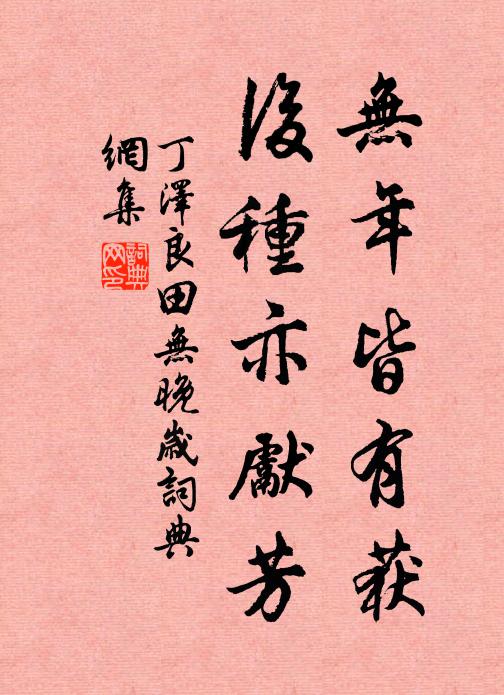 無年皆有获
後種亦獻芳
丁澤良田無晚歲詞典
網集
詞典
网印